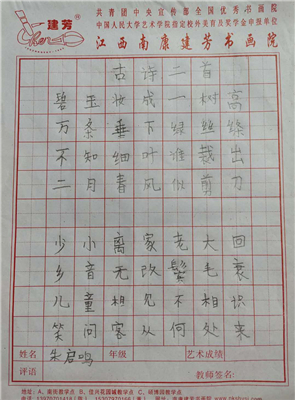 建芳
共青团中央宣传部全国优秀书画院
中国人民大学艺术学院指定校外美育及奖学金申报单位
江西南康建芳书画院
古诗二首
碧玉妆成一树高
万条垂下绿丝绦
不知细叶谁裁出
二月青风似剪刀
少小离家老大回
乡音无改鬓毛衰
儿童相见不相识
笑问客从何处来
姓名 朱启鸣 年级 艺术成绩
评语 教师签名: